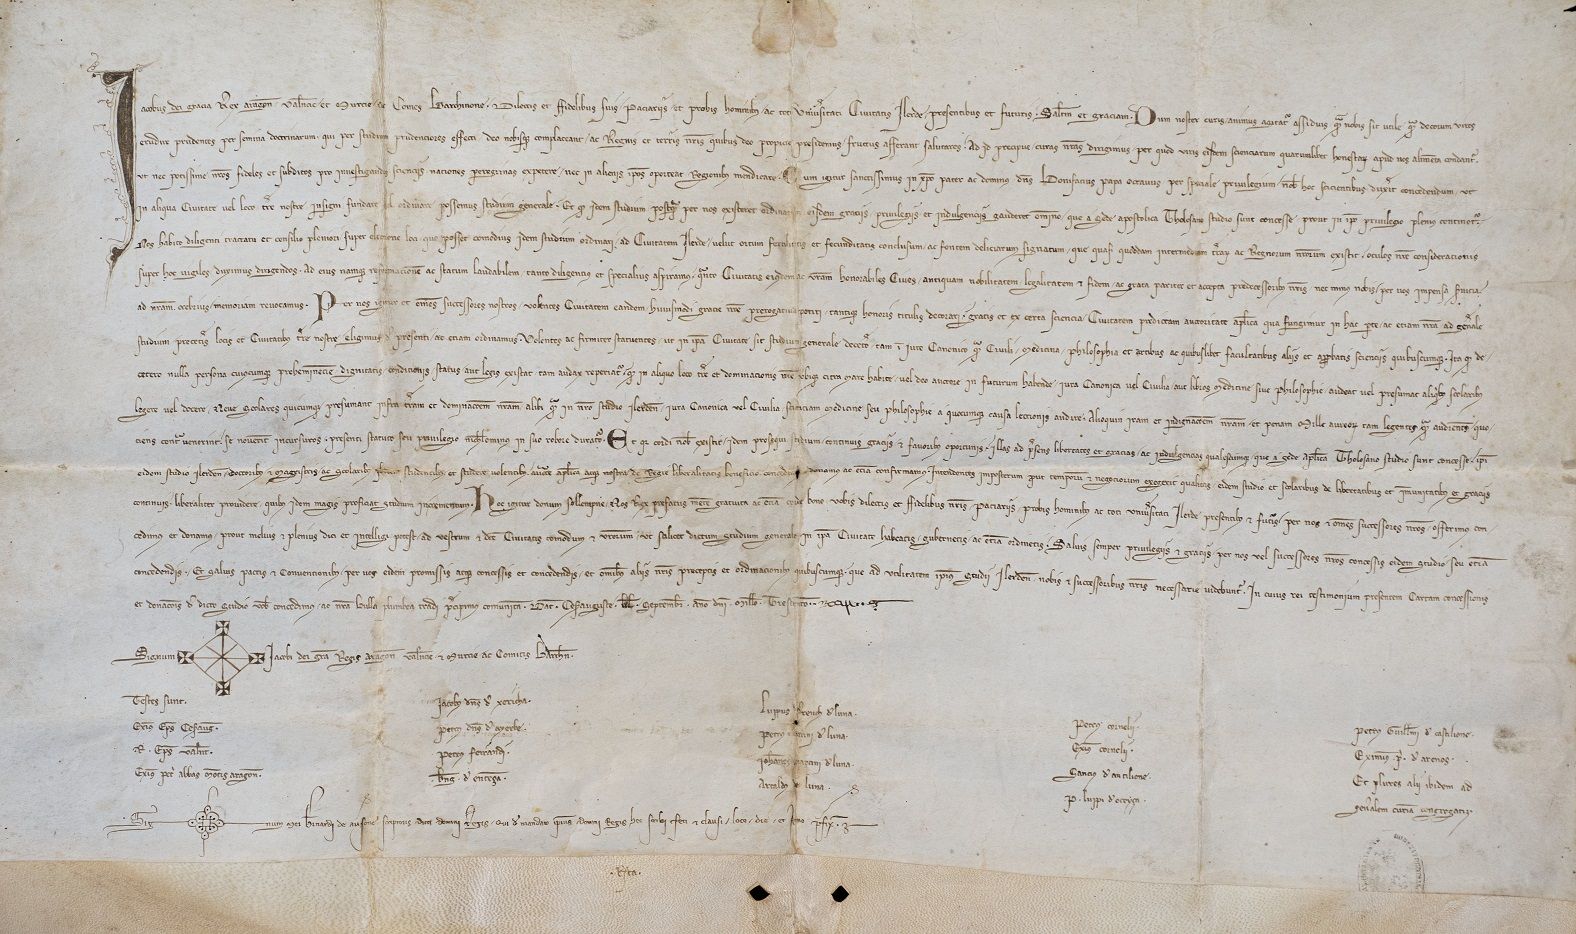 Jacobus dei gracia Rex aragon Valencie et Murcie ac Comes Barchinone. Dilectis et ffidelibus suis Paciariis et probis hominibus ac toti Universitati Civitatis Ilerde presentibus et futuris. Saltm et graciam. Dum noster curis animus agitatur assiduis quam nobis sit utile quam decorum viros
erudire prudentes per semina doctrinarum qui per studium prudenciores effecti deo nobisque complaceant ac Regnis et terris nris quibus deo propicio presidemus fructus afferant salutares. Ad id precipue curas nras dirigimus per quod viris eisdem scienciarum quarumlibet honestarum apud nos alimenta condantur.
ut nec potissime nros fideles et subditos pro investigandis scienciis naciones peregrinas expetere nec in alienis ipsos oporteat Regionibus mendicare. Cum igitur sanctissimus in xpo pater ac dominus dns Bonifacius papa octavus per speciale privilegium nob hoc scientibus duxerit concedendum ut
in aliqua Civitate vel loco tre nostre insigni fundare vel ordinare possemus studium generale. Et quod idem studium postquam per nos existeret ordinatum eisdem graciis privilegiis et indulgenciis gauderet omnino que a sede apostolica Tholosano studio sunt concesse prout in ipso privilegio plenius continetur.
Nos habito diligenti tractatu et consilio pleniori super electione loci quo posset comodius idem studium ordinari ad Civitatem Ilerde velut ortum fertilitatis et fecunditatis conclusum ac fontem deliciarum signatum que quasi quoddam intermedium terrarum ac Regnorum nrorum existit oculos nre consideracionis
super hoc vigiles duximus dirigendos. Ad eius namque reformacionem ac statum laudabilem tanto diligencius et specialius aspiramus quanto Civitatis eiusdem ac vram honorabiles Cives antiquam nobilitatem legalitatem et fidem ac grata pariter et accepta predecessoribus nris nec minus nobis per vos impensa servicia
ad nram crebrius memoriam revocamus. Per nos igitur et omnes successores nostros volentes Civitatem eandem huiusmodi gracie nre prerogativa potiri tantique honoris titulis decorari gratis et ex certa sciencia Civitatem predictam auctoritate aplica qua fungimur in hac parte ac etiam nra ad generale
studium pre ceteris locis et Civitatibus tre nostre eligimus de presenti ac etiam ordinamus. Volentes ac firmiter statuentes ut in ipsa Civitate sit studium generale decetero tam in iure Canonico quam Civili Medicina philosophia et artibus ac quibuslibet facultatibus aliis et approbatis scienciis quibuscumque. Ita quod de
cetero nulla persona cuiuscumque preheminencie dignitatis condicionis status aut legis existat tam audax reperiatur quod in aliquo loco tre et dominacionis nre ubique citra mare habite vel deo auctore in futurum habende iura Canonica vel Civilia aut libros Medicine sive philosophie audeat vel presumat aliquibus scolaribus
legere vel docere. Neve scolares quicumque presumant infra terram et dominacionem nram alibi quam in nro studio Ilerden iura Canonica vel Civilia scienciam medicine seu philosophie a quocumque causa lectionis audire. Alioquin iram et indignacionem nram et penam Mille aureorum tam legentes quam audientes quo
ciens contravenerint se noverint incursuros presenti statuto seu privilegio nichilominus in suo robore duraturo. Et quia cordi nobis existit idem prosequi studium continuis graciis et favoribus oportunis illas ad presens libertates et gracias ac indulgencias qualescumque que a sede aplica Tholosano studio sunt concesse ipsi
eidem studio Ilerden doctoribus et Magistris ac scolaribus studentibus et studere volentibus auctoritate aplica atque nostra de Regie liberalitatis beneficio concedimus donamus ac etiam confirmamus. Intendentes imposterum prout temporum et negociorum exegerit qualitas eidem studio et scolaribus de libertatibus et immunitatibus et graciis
continuis liberaliter providere quibus idem magis proficiat studium incrementum. Hoc igitur donum sollempne Nos Rex prefatus mente gratuita ac etiam corde bono vobis dilectis et ffidelibus nris Paciariis probis hominibus ac toti universitati Ilerde presentibus et futuris per nos et omnes successores nros offerimus con
cedimus et donamus prout melius et plenius dici et intelligi potest ad vestrum et dicte Civitatis comodum et vrorum ut scilicet dictum studium generale in ipsa Civitate habeatis gubernetis ac etiam ordinetis. Salvis semper privilegiis et graciis per nos vel successores nros concessis eidem studio seu etiam
concedendis. Et salvis pactis et convencionibus per vos eidem promissis atque concessis et concedendis et omnibus aliis nris preceptis et ordinacionibus quibuscumque que ad utilitatem ipsius Studii Ilerden nobis et successoribus nris necessarie videbuntur. In cuius rei testimonium presentem Cartam concessionis
et donacionis de dicto Studio vobis concedimus ac nra bulla plumbea tradi precepimus comunitam. Dat Cesarauguste kl Septembr Anno dni Millo Trescento
Signum Jacobi dei gra Regis aragon valncie et Murcie ac Comitis Barchn.
Testes sunt.
Exius Eps Cesaraug.
R. Eps valent.
Exius pr abbas Montis aragon.
Jacobus dns de xericha.
Petrus dns de ayerbe.
Petrus ferrandi.
Bng. de entença.
Luppus ffrench de luna.
Petrus Martini de luna.
Johannes Martini de luna.
Artaldus de luna.
Petrus cornelii.
Exius cornelii.
Sancius de antilione.
P. luppi de oteyça.
Petrus Guillmi de castilione.
Eximius p. de arenos.
Et plures alii ibidem ad
generalem curiam congregati.
Signum mei Bernardi de aversone scriptoris dicti domini Regis qui de mandato ipsius domini Regis hec scribi feci et clausi loco die et anno prefixis.
Rta.